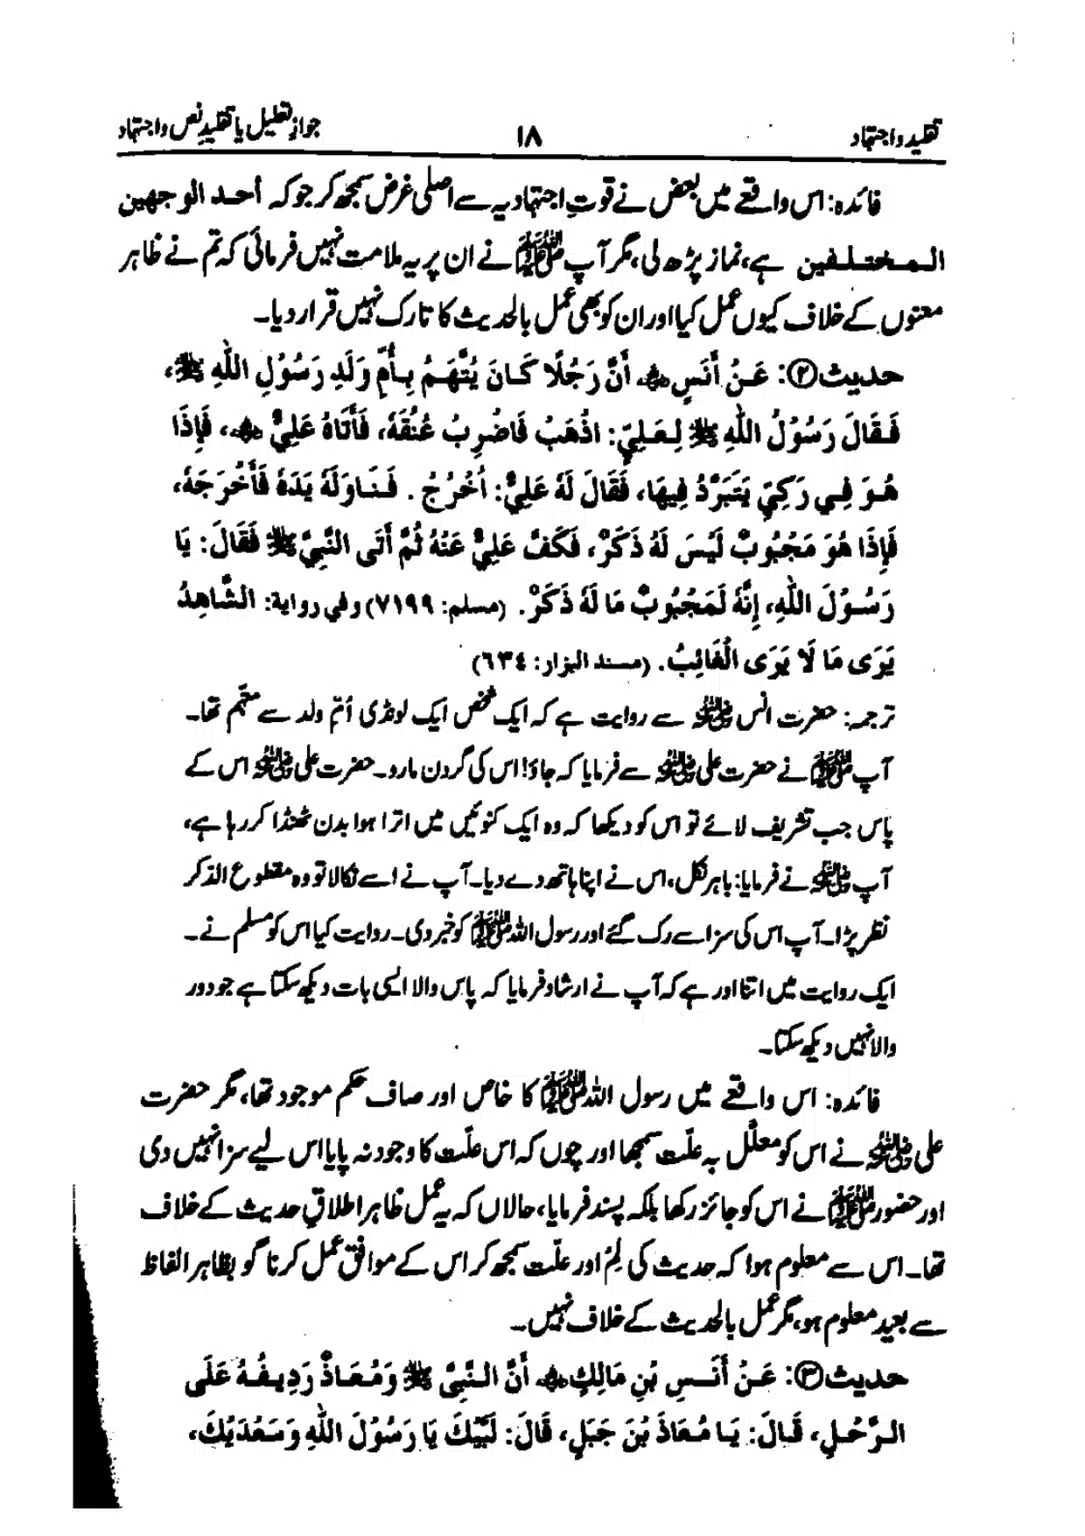 تقلید و اجتہاد
۱۸
جوازِ تعلیل یا تقلیدِ نص و اجتہاد
فائدہ: اس واقعے میں بعض نے قوتِ اجتہادیہ سے اصلی غرض سمجھ کر جو کہ أحد الوجهين
المختلفين ہے، نماز پڑھ لی، مگر آپ ﷺ نے ان پر یہ ملامت نہیں فرمائی کہ تم نے ظاہر
معنوں کے خلاف کیوں عمل کیا اور ان کو بھی عمل بالحدیث کا تارک نہیں قرار دیا۔
حدیث②: عَنْ أَنَسٍ ؓ أَنَّ رَجُلًا كَانَ يُتَّهَمُ بِأُمِّ وَلَدِ رَسُوْلِ اللّٰهِ ﷺ،
فَقَالَ رَسُوْلُ اللّٰهِ ﷺ لِعَلِيٍّ: اذْهَبْ فَاضْرِبْ عُنُقَهٗ، فَأَتَاهُ عَلِيٌّ ؓ، فَإِذَا
هُوَ فِي رَكِيٍّ يَتَبَرَّدُ فِيهَا، فَقَالَ لَهٗ عَلِيٌّ: اُخْرُجْ. فَنَاوَلَهٗ يَدَهٗ فَأَخْرَجَهٗ،
فَإِذَا هُوَ مَجْبُوْبٌ لَيْسَ لَهٗ ذَكَرٌ، فَكَفَّ عَلِيٌّ عَنْهُ ثُمَّ أَتَى النَّبِيَّ ﷺ فَقَالَ: يَا
رَسُوْلَ اللّٰهِ، إِنَّهٗ لَمَجْبُوْبٌ مَا لَهٗ ذَكَرٌ. (مسلم: ٧١٩٩) وفي رواية: الشَّاهِدُ
يَرَى مَا لَا يَرَى الْغَائِبُ. (مسند البزار: ٦٣٤)
ترجمہ: حضرت انس ؓ سے روایت ہے کہ ایک شخص ایک لونڈی اُمّ ولد سے متّہم تھا۔
آپ ﷺ نے حضرت علی ؓ سے فرمایا کہ جاؤ! اس کی گردن مارو۔ حضرت علی ؓ اس کے
پاس جب تشریف لائے تو اس کو دیکھا کہ وہ ایک کنوئیں میں اترا ہوا بدن ٹھنڈا کر رہا ہے،
آپ ؓ نے فرمایا: باہر نکل، اس نے اپنا ہاتھ دے دیا۔ آپ نے اسے نکالا تو وہ مقطوع الذکر
نظر پڑا۔ آپ اس کی سزا سے رک گئے اور رسول اللہ ﷺ کو خبر دی۔ روایت کیا اس کو مسلم نے۔
ایک روایت میں اتنا اور ہے کہ آپ نے ارشاد فرمایا کہ پاس والا ایسی بات دیکھ سکتا ہے جو دور
والا نہیں دیکھ سکتا۔
فائدہ: اس واقعے میں رسول اللہ ﷺ کا خاص اور صاف حکم موجود تھا، مگر حضرت
علی ؓ نے اس کو معلّل بہ علّت سمجھا اور چوں کہ اس علّت کا وجود نہ پایا اس لیے سزا نہیں دی
اور حضور ﷺ نے اس کو جائز رکھا بلکہ پسند فرمایا، حالاں کہ یہ عمل ظاہر اطلاقِ حدیث کے خلاف
تھا۔ اس سے معلوم ہوا کہ حدیث کی لِمْ اور علّت سمجھ کر اس کے موافق عمل کرنا گو بظاہر الفاظ
سے بعید معلوم ہو، مگر عمل بالحدیث کے خلاف نہیں۔
حدیث③: عَنْ أَنَسِ بْنِ مَالِكٍ ؓ أَنَّ النَّبِيَّ ﷺ وَمُعَاذٌ رَدِيفُهٗ عَلَى
الرَّحْلِ، قَالَ: يَا مُعَاذَ بْنَ جَبَلٍ، قَالَ: لَبَّيْكَ يَا رَسُوْلَ اللّٰهِ وَسَعْدَيْكَ،